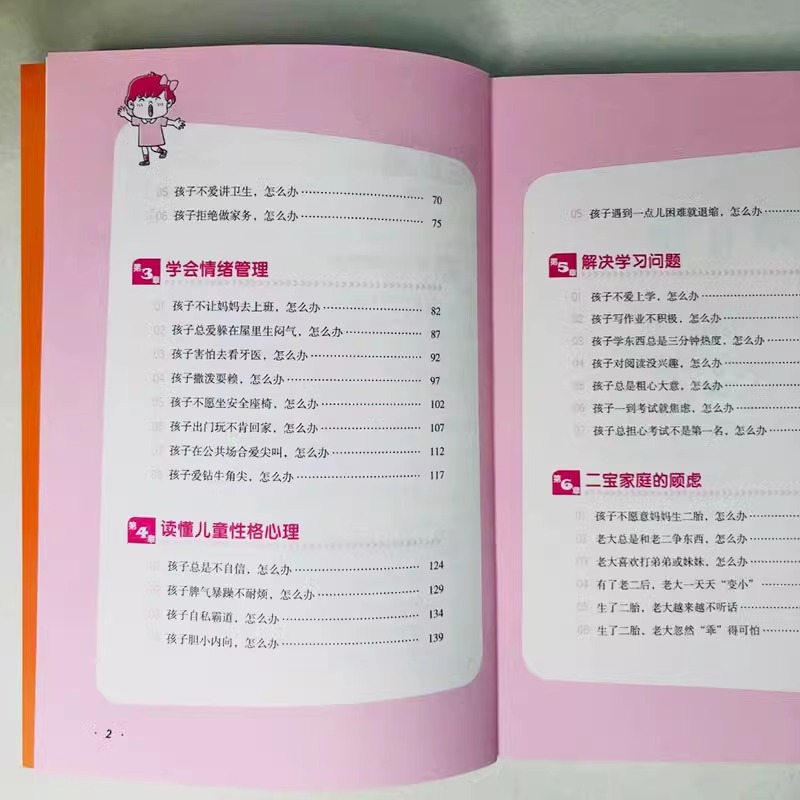 05 孩子不爱讲卫生，怎么办 70
06 孩子拒绝做家务，怎么办 75
第3章 学会情绪管理
01 孩子不让妈妈去上班，怎么办 82
02 孩子总爱躲在屋里生闷气，怎么办 87
03 孩子害怕去看牙医，怎么办 92
04 孩子撒泼耍赖，怎么办 97
05 孩子不愿坐安全座椅，怎么办 102
06 孩子出门玩不肯回家，怎么办 107
07 孩子在公共场合爱尖叫，怎么办 112
08 孩子爱钻牛角尖，怎么办 117
第4章 读懂儿童性格心理
孩子总是不自信，怎么办 124
孩子脾气暴躁不耐烦，怎么办 129
孩子自私霸道，怎么办 134
孩子胆小内向，怎么办 139
· 2 ·
05 孩子遇到一点儿困难就退缩，怎么办
第5章 解决学习问题
01 孩子不爱上学，怎么办
02 孩子写作业不积极，怎么办
03 孩子学东西总是三分钟热度，怎么办
04 孩子对阅读没兴趣，怎么办
05 孩子总是粗心大意，怎么办
06 孩子一到考试就焦虑，怎么办
07 孩子总担心考试不是第一名，怎么办
第6章 二宝家庭的顾虑
01 孩子不愿意妈妈生二胎，怎么办
02 老大总是和老二争东西，怎么办
03 老大喜欢打弟弟或妹妹，怎么办
04 有了老二后，老大一天天“变小”
05 生了二胎，老大越来越不听话
06 生了二胎，老大忽然“乖”得可怕